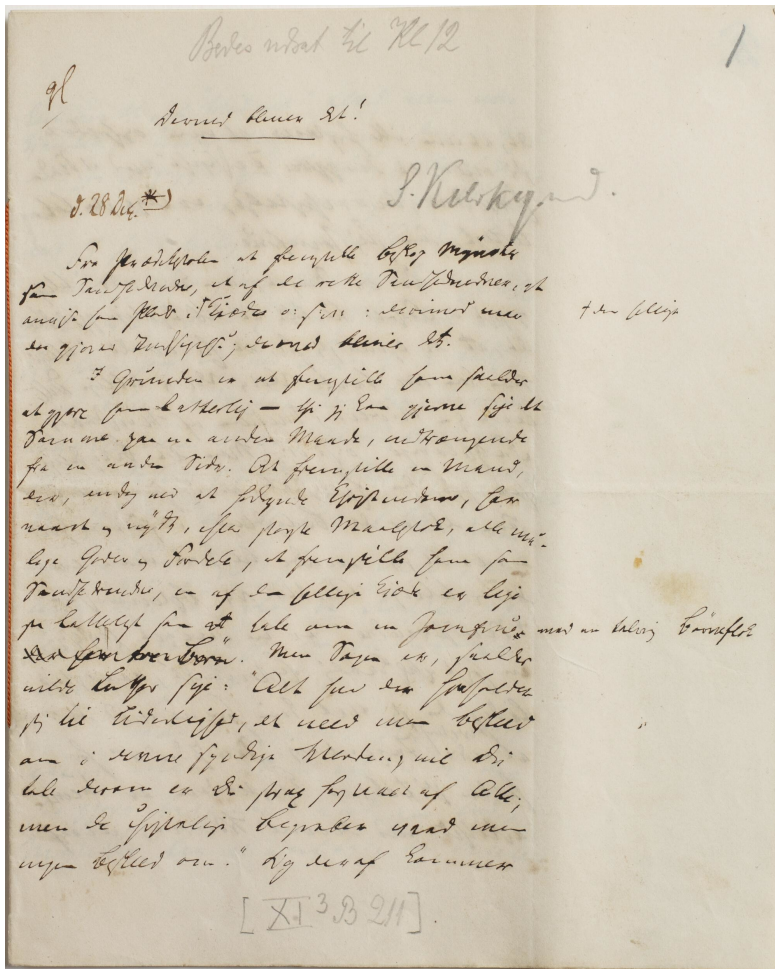 Bedes udsat til Kl 12
1
Derved bliver det!
S. Kierkegaard.
d. 28 Dec. *)
Fra Prædikestolen at fremstille Biskop Mynster
som Sandhedsvidne, et af de rette Sandhedsvidner, at
anvise ham Plads i † Kjæde
† den hellige
der gjøres Indsigelse; derved bliver det.
Grunden er at fremstille ham saaledes
at gjøre ham latterlig — thi jeg kan gjerne sige det
Samme paa en anden Maade, indtrængende
fra en anden Side. At fremstille en Mand,
der, endog ved at forkynde Christendom, har
naaet og nydt, efter største Maalestok, alle mu-
lige Goder og Fordele, at fremstille ham som
Sandhedsvidne, en af den hellige Kjæde er lige
saa latterligt som at tale om en Jomfrue med en talrig Børneflok
Men Sagen er, saaledes
vilde Luther sige: "Alt hvad der forholder
sig til Liderlighed, det veed man Besked
om i denne syndige Verden, vil Du
tale derom er Du strax forstaaet af Alle;
men de christelige Begreber veed man
ingen Besked om." Og deraf kommer
[XI 3 B 211].